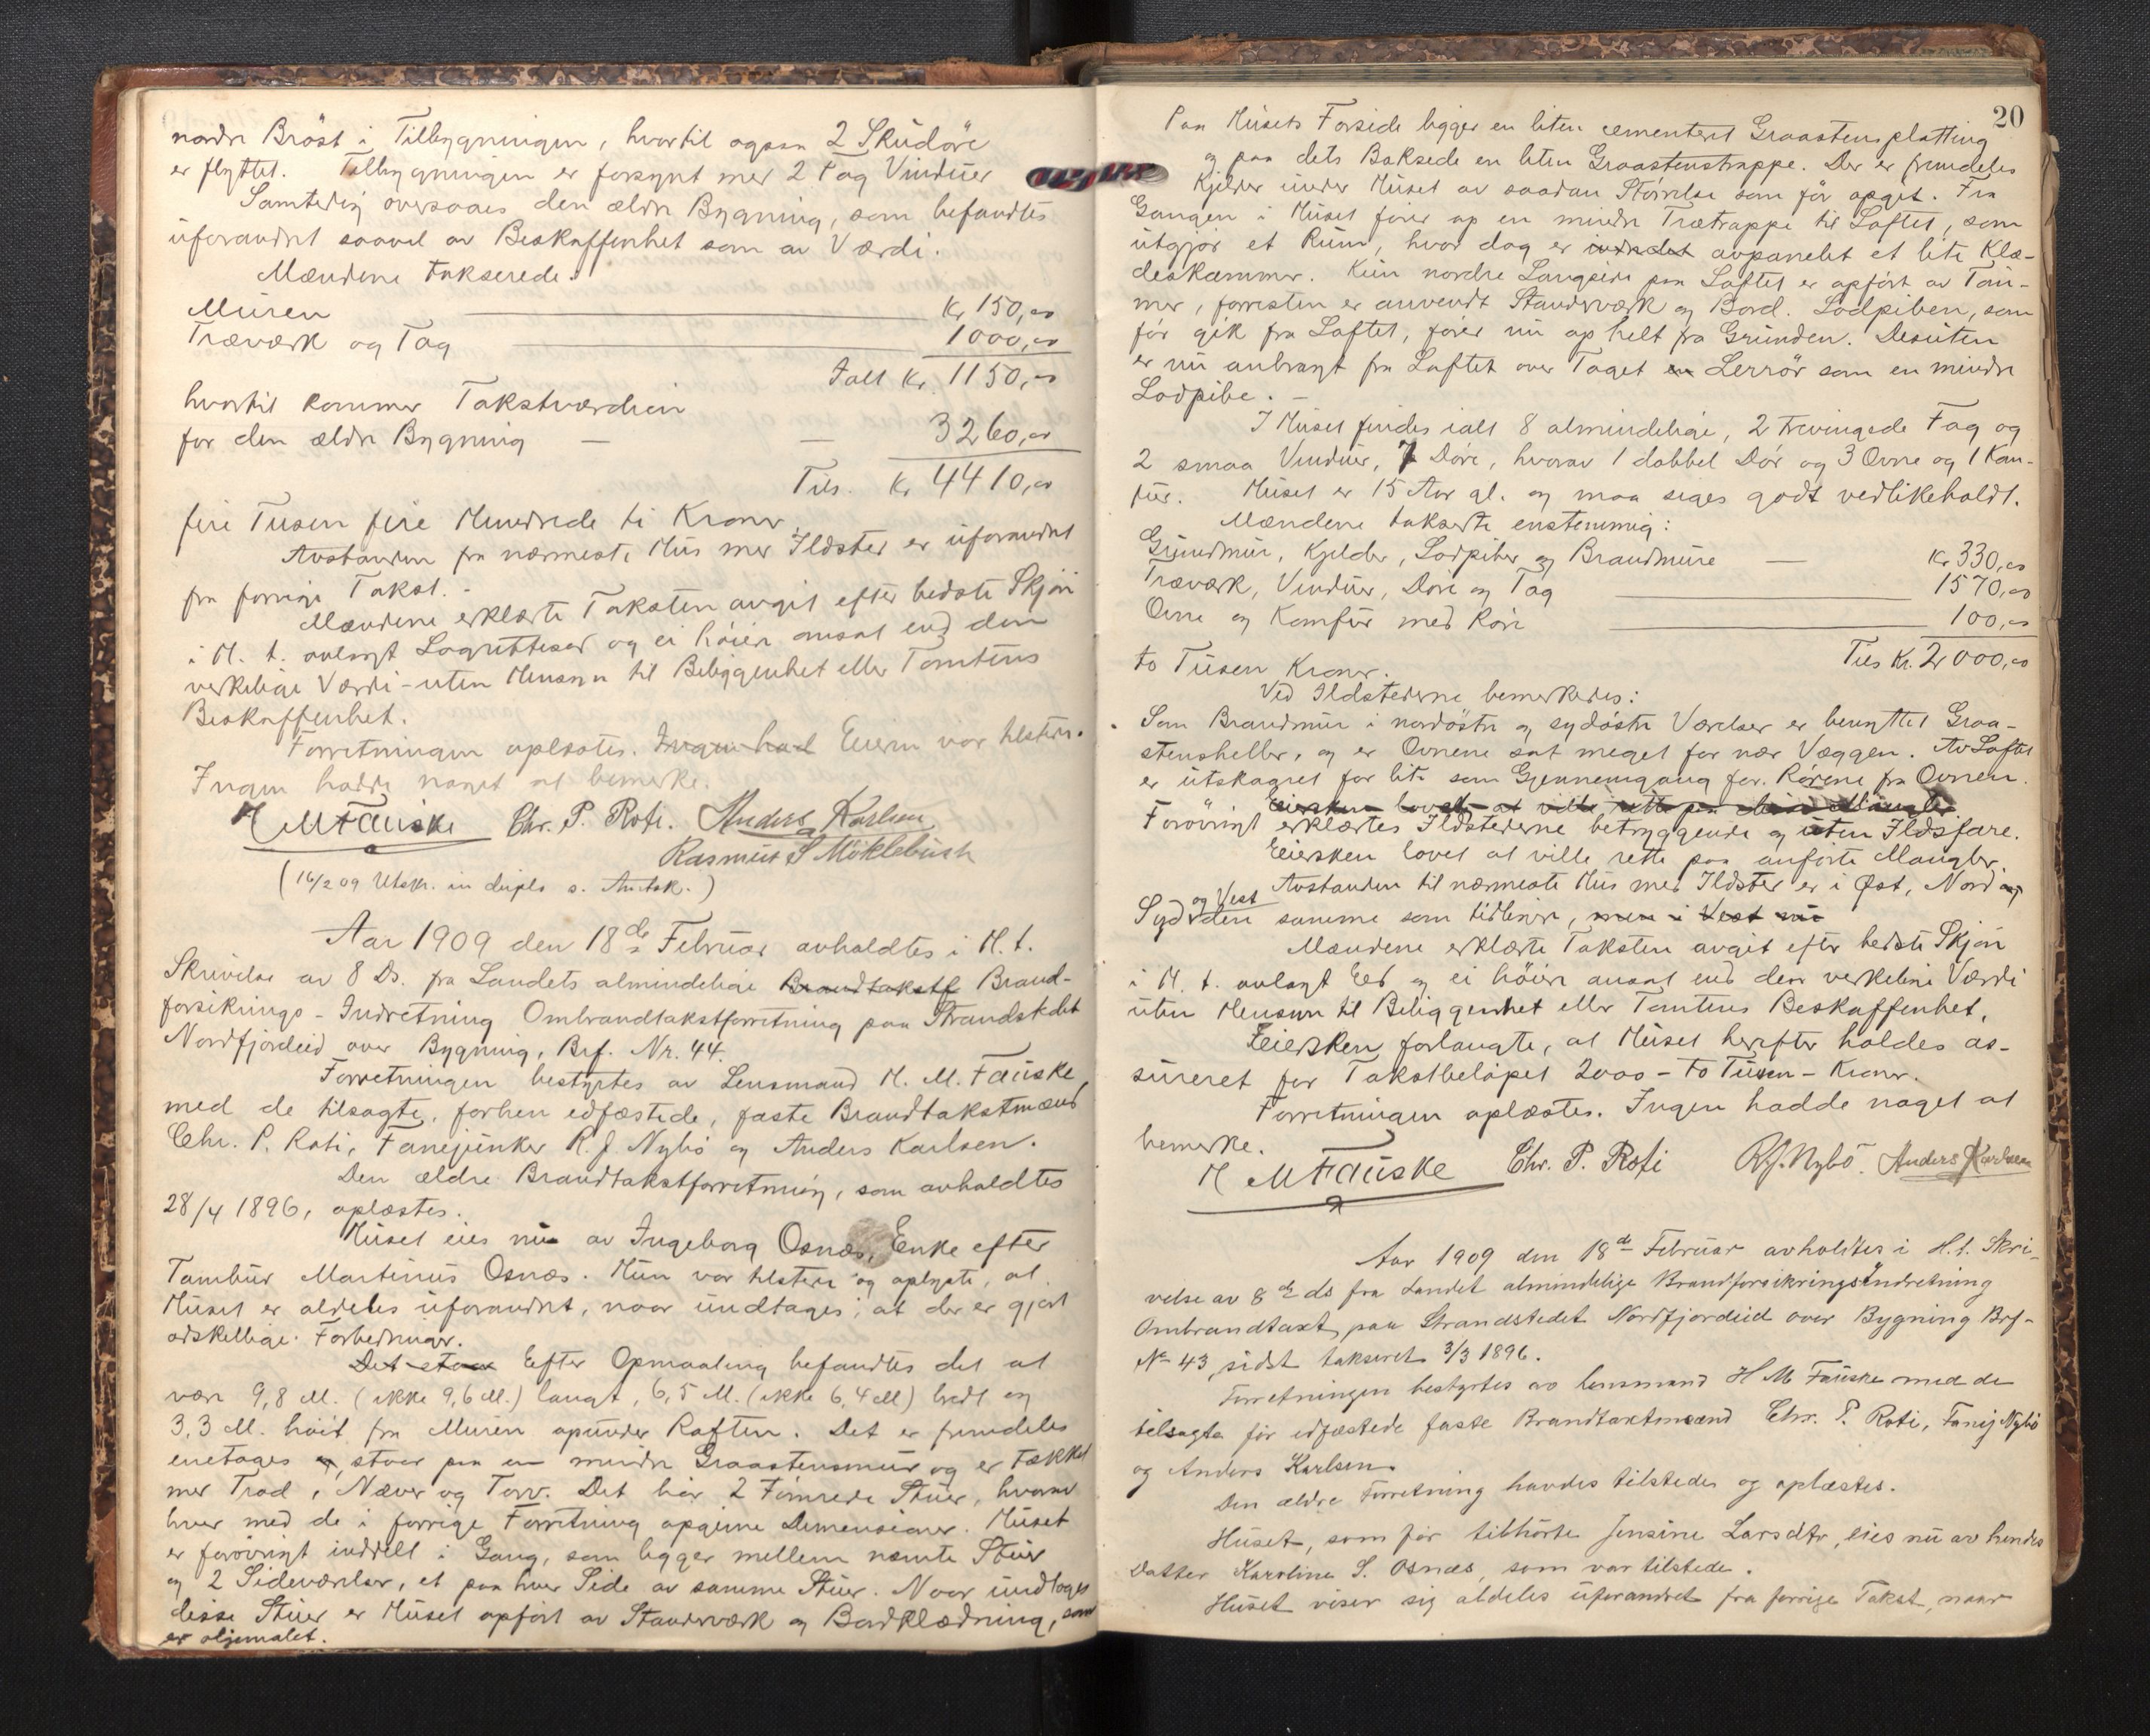 nordre Bröst i Tilbygningen, hvortil ogsaa 2 Skudöre
er flyttet. Tilbygningen er forsynt mer 2 Fag Vinduer
Samtidig oversaaes den ældre Bygning, som befandtes
uforandret saavel av Beskaffenhet som av Værdi.
Mændene takserede:
Muren Kr. 150,00
Træværk og Tag 1000,00
Ialt Kr 1150,00
hvortil kommer Takstværdien
for den ældre Bygning — — 3260,00
Tils. Kr 4410,00
fire Tusen fire Hundrede ti Kroner.
Avstanden fra nærmeste Hus mer Ildsted er uforandret
fra forrige Takst.
Mændene erklærte Taksten avgit efter bedste Skjön
i H. t. avlagt Lagrettesed og ei höiere ansat end den
verkelige Værdi - uten Hensyn til Beliggenhet eller Tomtens
Beskaffenhet.
Forretningen oplæstes. Ingen had Eieren var tilstede.
Ingen hadde noget at bemerke.
H M Fauske Chr. P. Roti. Anders Karlsen
Rasmus S Myklebust
(16/2 09 Utskr. in duplo s. Amtsk.)
Aar 1909 den 18de Februar avholdtes i H. t.
Skrivelse av 8 Ds. fra Landets almindelige Brandtakstf Brand-
forsikrings-Indretning Ombrandtakstforretning paa Strandstedet
Nordfjordeid over Bygning, Brf. Nr. 44.
Forretningen bestyrtes av Lensmand H. M. Fauske,
med de tilsagte, forhen edfæstede, faste Brandtakstmænd
Chr. P. Roti, Fanejunker R. J. Nybö og Anders Karlsen.
Den ældre Brandtakstforretning, som avholdtes
28/4 1896, oplæstes.
Huset eies nu av Ingeborg Osnæs, Enke efter
Tambur Martinus Osnæs. Hun var tilstede og oplyste, at
Huset er aldeles uforandret, naar undtages, at der er gjort
adskellige Forbedringer.
Det staar Efter Opmaaling befandtes det at
være 9,8 M. (ikke 9,6 M.) langt, 6,5 M. (ikke 6,4 M) bredt og
3,3 M. höit fra Muren opunder Raften. Det er fremdeles
enetages og, staar paa en mindre Graastensmur og er tækket
mer Trod, Næver og Torv. Det har 2 tömrede Stuer, hvorav
hver med de i forrige Forretning opgivne Dimensioner. Huset
er forövrigt inddelt i Gang, som ligger mellem nævnte Stuer
og 2 Sideværelser, et paa hver Side av samme Stuer. Naar undtages
disse Stuer er Huset opfört av Standerværk og Bordklædning, som
er oljemalet.
20
Paa Husets Forside ligger en liten cementeret Graastensplatting
og paa dets Bakside en liten Graastenstrappe. Der er fremdeles
Kjelder under Huset av saadan Störrelse som för opgit. Fra
Gangen i Huset förer op en mindre Trætrappe til Loftet, som
utgjör et Rum, hvor dog er indredet avpanelet et lite Klæ-
deskammer. Kun nordre Langside paa Loftet er opfört av Töm-
mer, forresten er anvendt Standerværk og Bord. Lodpiben, som
för gik fra Loftet, förer nu op helt fra Grunden. Desuten
er nu anbragt fra Loftet over Taget en Lerrör som en mindre
Lodpibe. —
I Huset findes ialt 8 almindelige, 2 trevingede Fag og
2 smaa Vinduer, 7 Döre, hvorav 1 dobbel Dör og 3 Ovne og 1 Kom-
fur. Huset er 15 Aar gl. og maa siges godt vedlikeholdt.
Mændene takserte enstemmig:
Grundmur, Kjelder, Lodpiber og Brandmure — Kr. 330,00
Træværk, Vinduer, Döre og Tag 1570,00
Ovne og Komfur med Rör 100,00
Tils Kr. 2000,00
to Tusen Kroner.
Ved Ildstederne bemerkedes:
Som Brandmur i nordöstre og sydöstre Værelser er benyttet Graa-
stensheller, og er Ovnene sat meget for nær Væggen. Av Loftet
er utskaaret for lite som Gjennemgang for Rörene fra Ovnen.
Eiersken lovet at ville rette paa disse Mangler
Forövrigt erklærtes Ildstederne betryggende og uten Ildsfare.
Eiersken lovet at ville rette paa anförte Mangler.
Avstanden til nærmeste Hus med Ildsted er i Øst, Nord og
Syd og Vest den samme som tidligere, men i Vest nu
Mændene erklærte Taksten avgit efter bedste Skjön
i H. t. avlagt Eed og ei höiere ansat end den verkelige Værdi
uten Hensyn til Beliggenhet eller Tomtens Beskaffenhet.
Eiersken forlangte, at Huset herefter holdes as-
sureret for Takstbelöpet 2000 - to Tusen - Kroner.
Forretningen oplæstes. Ingen hadde noget at
bemerke.
H M Fauske Chr. P. Roti R J. Nybö. Anders Karlsen
Aar 1909 den 18de Februar avholdtes i H. t. Skri-
velse av 8de ds fra Landets almindelige Brandforsikringsindretning
Ombrandtaxt paa Strandstedet Nordfjordeid over Bygning Brf-
No 43, sidst takseret 3/3 1896.
Forretningen bestyrtes av Lensmand H M Fauske med de
tilsagte för edfæstede faste Brandtaxtmænd Chr. P. Roti, Fanej Nybö
og Anders Karlsen.
Den ældre Forretning havdes tilstede og oplæstes.
Huset, som för tilhörte Jensine Larsdtr, eies nu av hendes
Datter Karoline S. Osnæs, som var tilstede.
Huset viser sig aldeles uforandret fra forrige Takst, naar